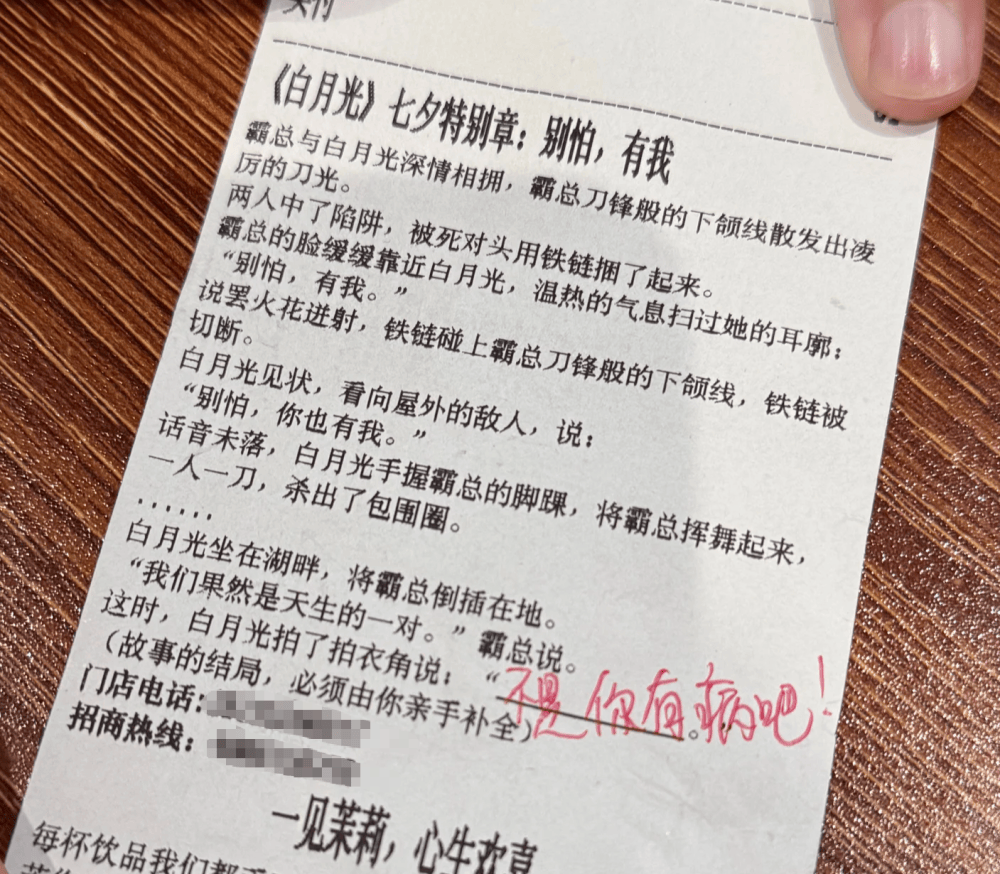 《白月光》七夕特别章：别怕，有我
霸总与白月光深情相拥，霸总刀锋般的下颌线散发出凌
厉的刀光。
两人中了陷阱，被死对头用铁链捆了起来。
霸总的脸缓缓靠近白月光，温热的气息扫过她的耳廓：
“别怕，有我。”
说罢火花迸射，铁链碰上霸总刀锋般的下颌线，铁链被
切断。
白月光见状，看向屋外的敌人，说：
“别怕，你也有我。”
话音未落，白月光手握霸总的脚踝，将霸总挥舞起来，
一人一刀，杀出了包围圈。
......
白月光坐在湖畔，将霸总倒插在地。
“我们果然是天生的一对。”霸总说。
这时，白月光拍了拍衣角说：“不是你有病吧！。
（故事的结局，必须由你亲手补全）
门店电话：
招商热线：
一见茉莉，心生欢喜
每杯饮品我们都